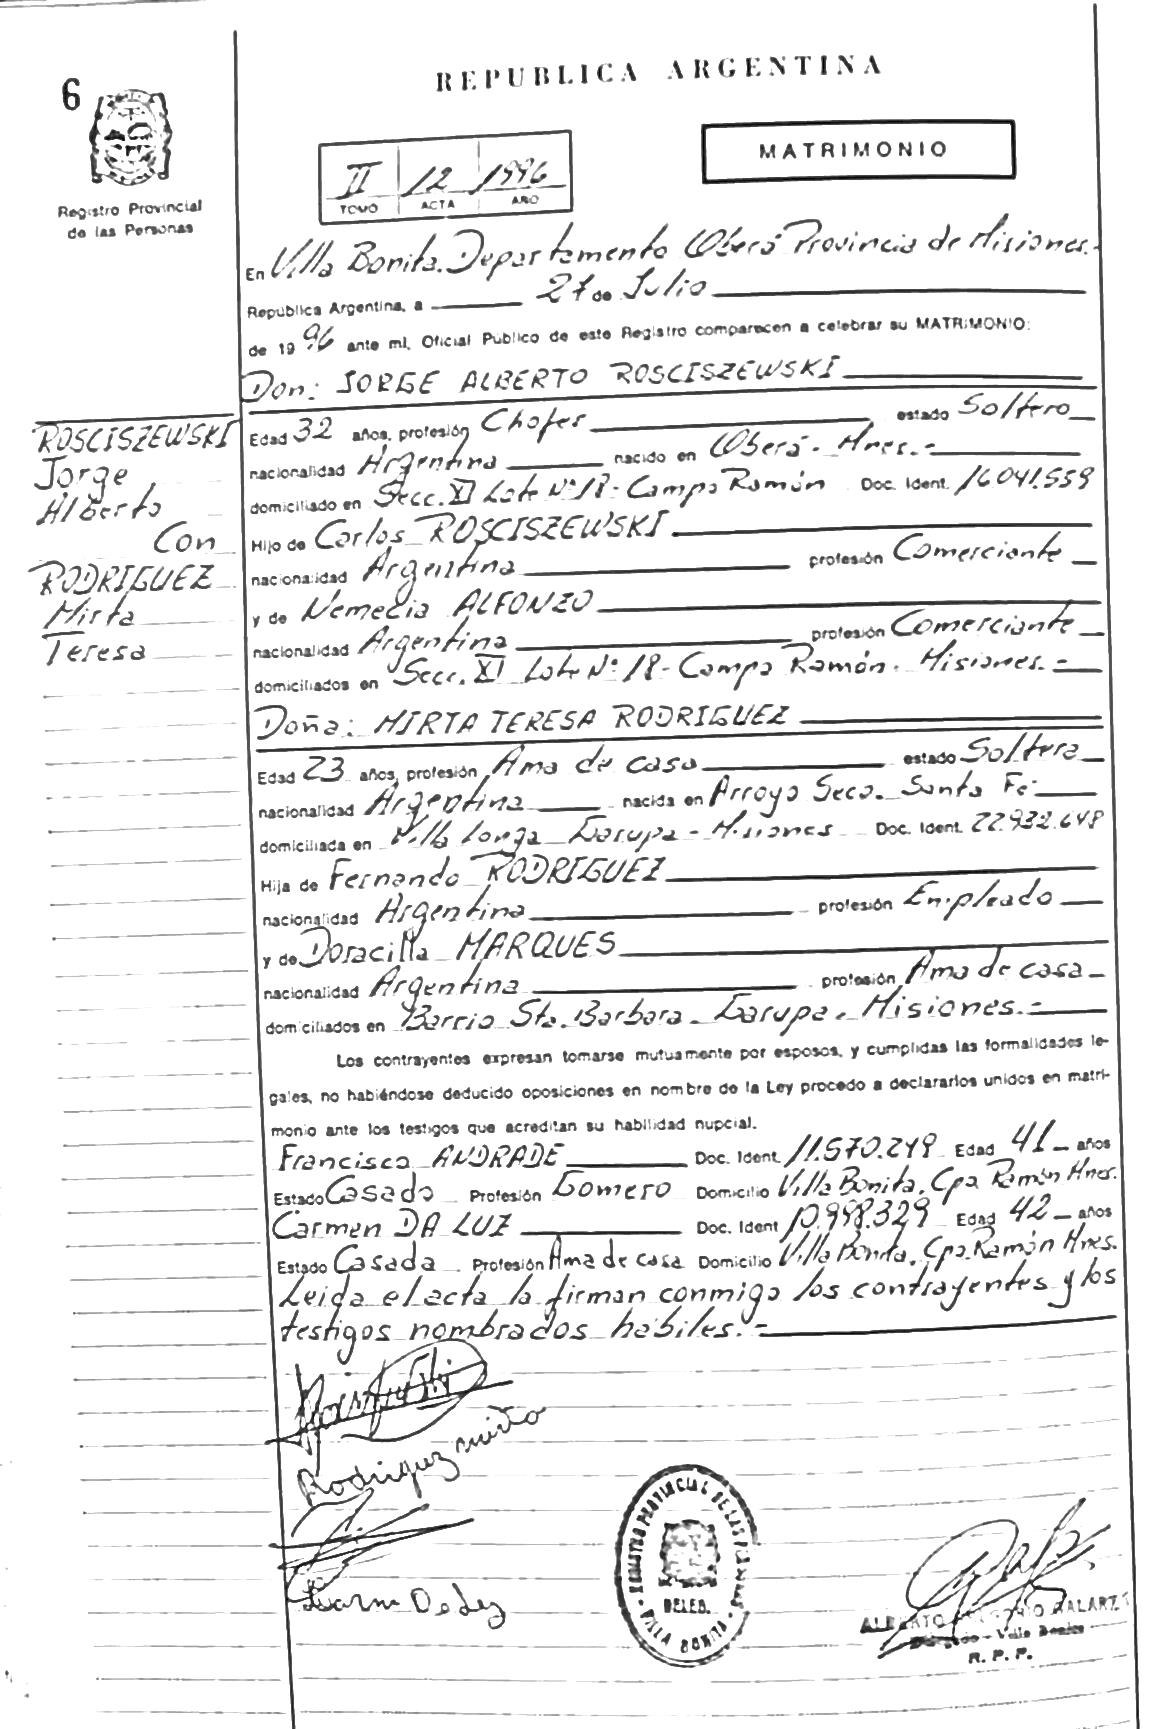 REPUBLICA ARGENTINA
6
MATRIMONIO
II 12 1996
TOMO ACTA AÑO
Registro Provincial
de las Personas
En Villa Bonita. Departamento Oberá Provincia de Misiones.-
República Argentina, a 27 de Julio
de 1996 ante mí, Oficial Público de este Registro comparecen a celebrar su MATRIMONIO:
Don: JORGE ALBERTO ROSCISZEWSKI
ROSCISZEWSKI
Jorge
Alberto
Con
RODRIGUEZ
Mirta
Teresa
Edad 32 años, profesión Chofer estado Soltero
nacionalidad Argentina nacido en Oberá - Mnes.-
domiciliado en Secc. XI Lote Nº 18 - Campo Ramón Doc. Ident. 16.041.559
Hijo de Carlos ROSCISZEWSKI
nacionalidad Argentina profesión Comerciante
y de Nemecia ALFONZO
nacionalidad Argentina profesión Comerciante
domiciliados en Secc. XI Lote Nº 18 - Campo Ramón. Misiones.-
Doña: MIRTA TERESA RODRIGUEZ
Edad 23 años, profesión Ama de casa estado Soltera
nacionalidad Argentina nacida en Arroyo Seco. Santa Fé
domiciliada en Villa Longa Garupa - Misiones Doc. Ident. 22.932.648
Hija de Fernando RODRIGUEZ
nacionalidad Argentina profesión Empleado
y de Doracilla MARQUES
nacionalidad Argentina profesión Ama de casa
domiciliados en Barrio Sta. Barbara - Garupa. Misiones.-
Los contrayentes expresan tomarse mutuamente por esposos, y cumplidas las formalidades le-
gales, no habiéndose deducido oposiciones en nombre de la Ley procedo a declararlos unidos en matri-
monio ante los testigos que acreditan su habilidad nupcial.
Francisco ANDRADE Doc. Ident. 11.570.249 Edad 41 años
Estado Casado Profesión Gomero Domicilio Villa Bonita. Cpo. Ramón Mnes.
Carmen DA LUZ Doc. Ident 10.998.329 Edad 42 años
Estado Casada Profesión Ama de casa Domicilio Villa Bonita. Cpo. Ramón Mnes.
Leida el acta la firman conmigo los contrayentes y los
testigos nombrados habiles.-
Rodriguez mirta
REGISTRO PROVINCIAL DE LAS PERSONAS
DELEG.
VILLA BONITA
ALBERTO GREGORIO GALARZA
Delegado - Villa Bonita
R. P. P.